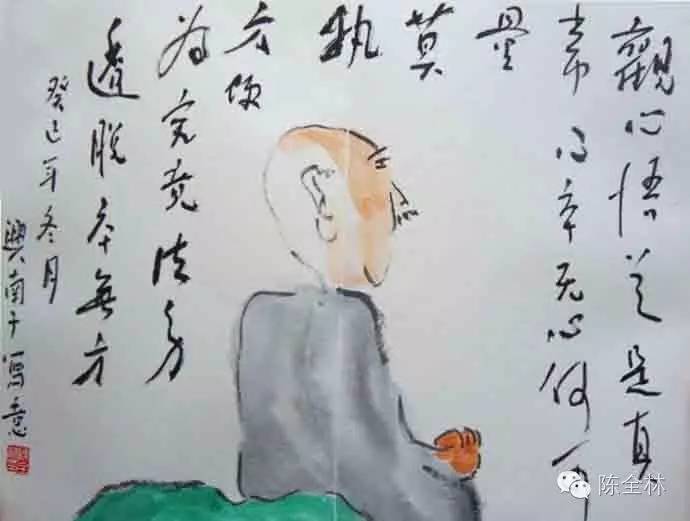 觀心悟道是真
常心本无心何可
量
莫
執
方便
为究竟法身
透脱本無方
癸巳年冬月
興南子写意
陈全林